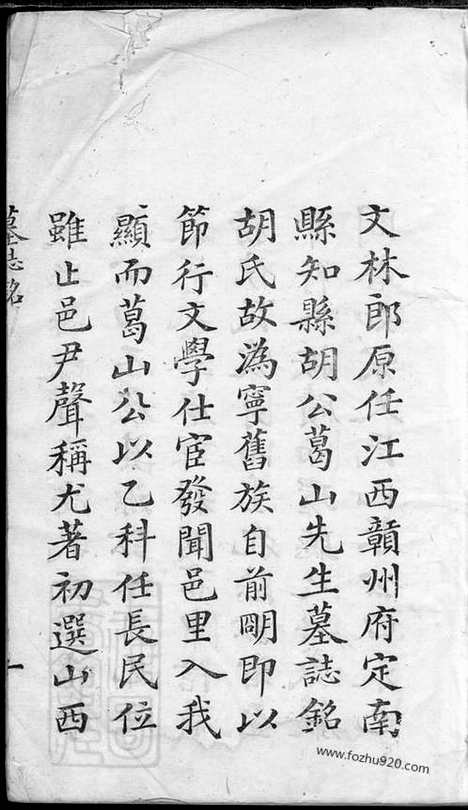 文林郎原任江西贛州府定南
縣知縣胡公葛山先生墓誌銘
胡氏故溈寧舊族自前朙即以
節行文學仕宦發聞邑里入我
顯而葛山公以乙科任長民位
雖止邑尹聲稱尤著初選山西
墓誌銘
一
www.fozhu920.com